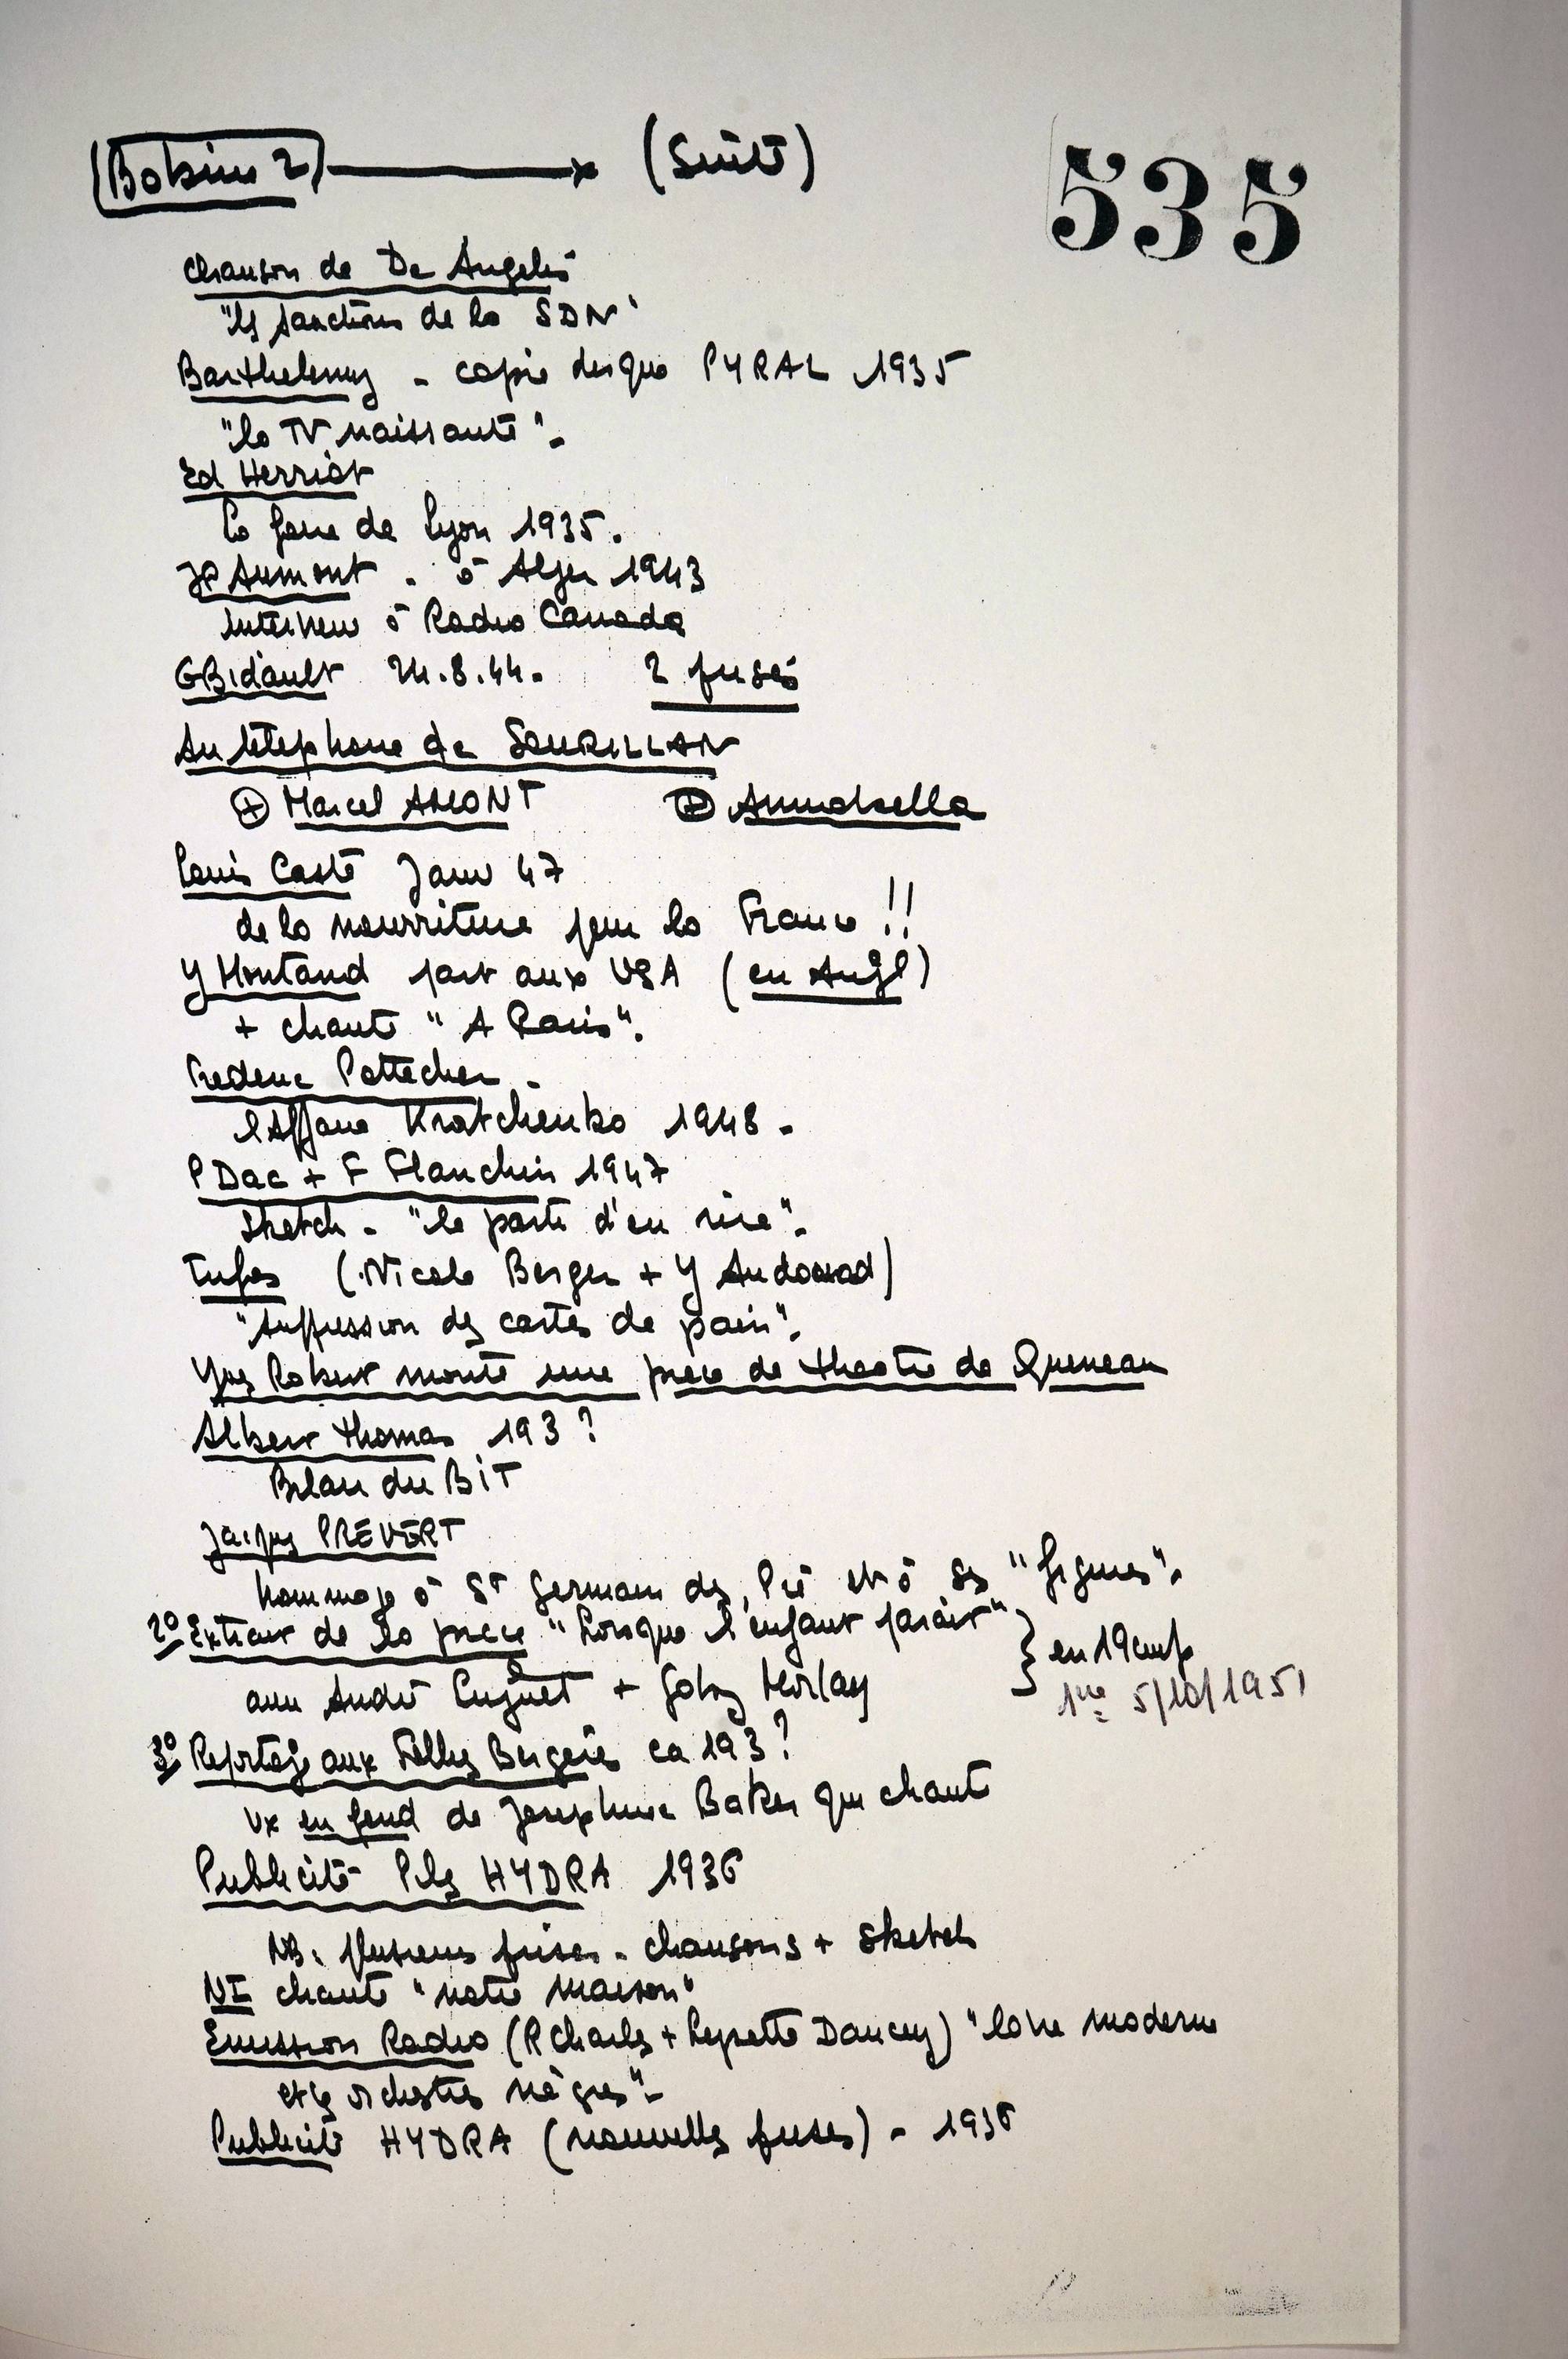 Bobine 2 → (Suite)
535
Chanson de De Angelis
"les sanctions de la SDN"
Barthelemy - copie disque PYRAL 1935
"la TV naissante".
Ed Herriot
la foire de Lyon 1935.
JP Aumont. à Alger 1943
Interview à Radio Canada
G Bidault 24.8.44. 2 prises
Au telephone de SOURILLAN
+ Marcel AMONT + Annabella
Louis Casté Janv 47
de la nourriture pour la France !!
Y Montand part aux USA (en Angl)
+ chante "A Paris".
Frederic Pottecher -
l'Affaire Kratchenko 1948 -
P Dac + F Flanchin 1947
Sketch - "le parti d'en rire".
Infos (Nicole Berger + Y Audouad)
"Suppression des cartes de pain".
Yves Robert monte une piece de theatre de Queneau
Albert Thomas 193?
Bilan du BIT
Jacques PRÉVERT
hommage à St Germain des Pré et à ses "figures".
2° Extrait de la piece "Lorsque l'enfant parait"
avec André Luguet + Gaby Morlay
} en 19cm/s
1ère 5/10/1951
3° Reportage aux Folies Bergère ca 193?
Vx en fond de Josephine Baker qui chante
Publicité Piles HYDRA 1936
NB: plusieurs prises - chansons + sketch
NI chante "notre maison"
Emission Radio (R Charles + Lysette Dancey) "la vie moderne
et les orchestres nègres".
Publicité HYDRA (nouvelles prises) - 1936